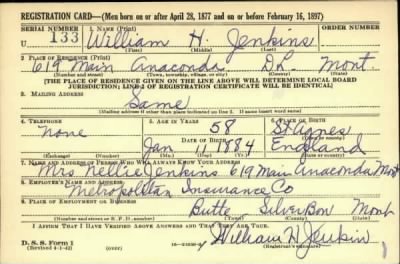 REGISTRATION CARD—(Men born on or after April 28, 1877 and on or before February 16, 1897)
SERIAL NUMBER 1. NAME (Print) ORDER NUMBER
U 133 William H. Jenkins
(First) (Middle) (Last)
2. PLACE OF RESIDENCE (Print)
619 Main Anaconda D.L. Mont.
(Number and street) (Town, township, village, or city) (County) (State)
[THE PLACE OF RESIDENCE GIVEN ON THE LINE ABOVE WILL DETERMINE LOCAL BOARD
JURISDICTION; LINE 2 OF REGISTRATION CERTIFICATE WILL BE IDENTICAL]
3. MAILING ADDRESS
Same
[Mailing address if other than place indicated on line 2. If same insert word same]
4. TELEPHONE 5. AGE IN YEARS 6. PLACE OF BIRTH
None 58 St Agnes
DATE OF BIRTH (Town or county)
Jan 11 1884 England
(Exchange) (Number) (Mo.) (Day) (Yr.) (State or country)
7. NAME AND ADDRESS OF PERSON WHO WILL ALWAYS KNOW YOUR ADDRESS
Mrs Nellie Jenkins 619 Main Anaconda Mont
8. EMPLOYER'S NAME AND ADDRESS
Metropolitan Insurance Co
9. PLACE OF EMPLOYMENT OR BUSINESS
Butte Silver Bow Mont
(Number and street or R. F. D. number) (Town) (County) (State)
I AFFIRM THAT I HAVE VERIFIED ABOVE ANSWERS AND THAT THEY ARE TRUE.
D. S. S. Form 1
(Revised 4-1-42) (over)
William H Jenkin